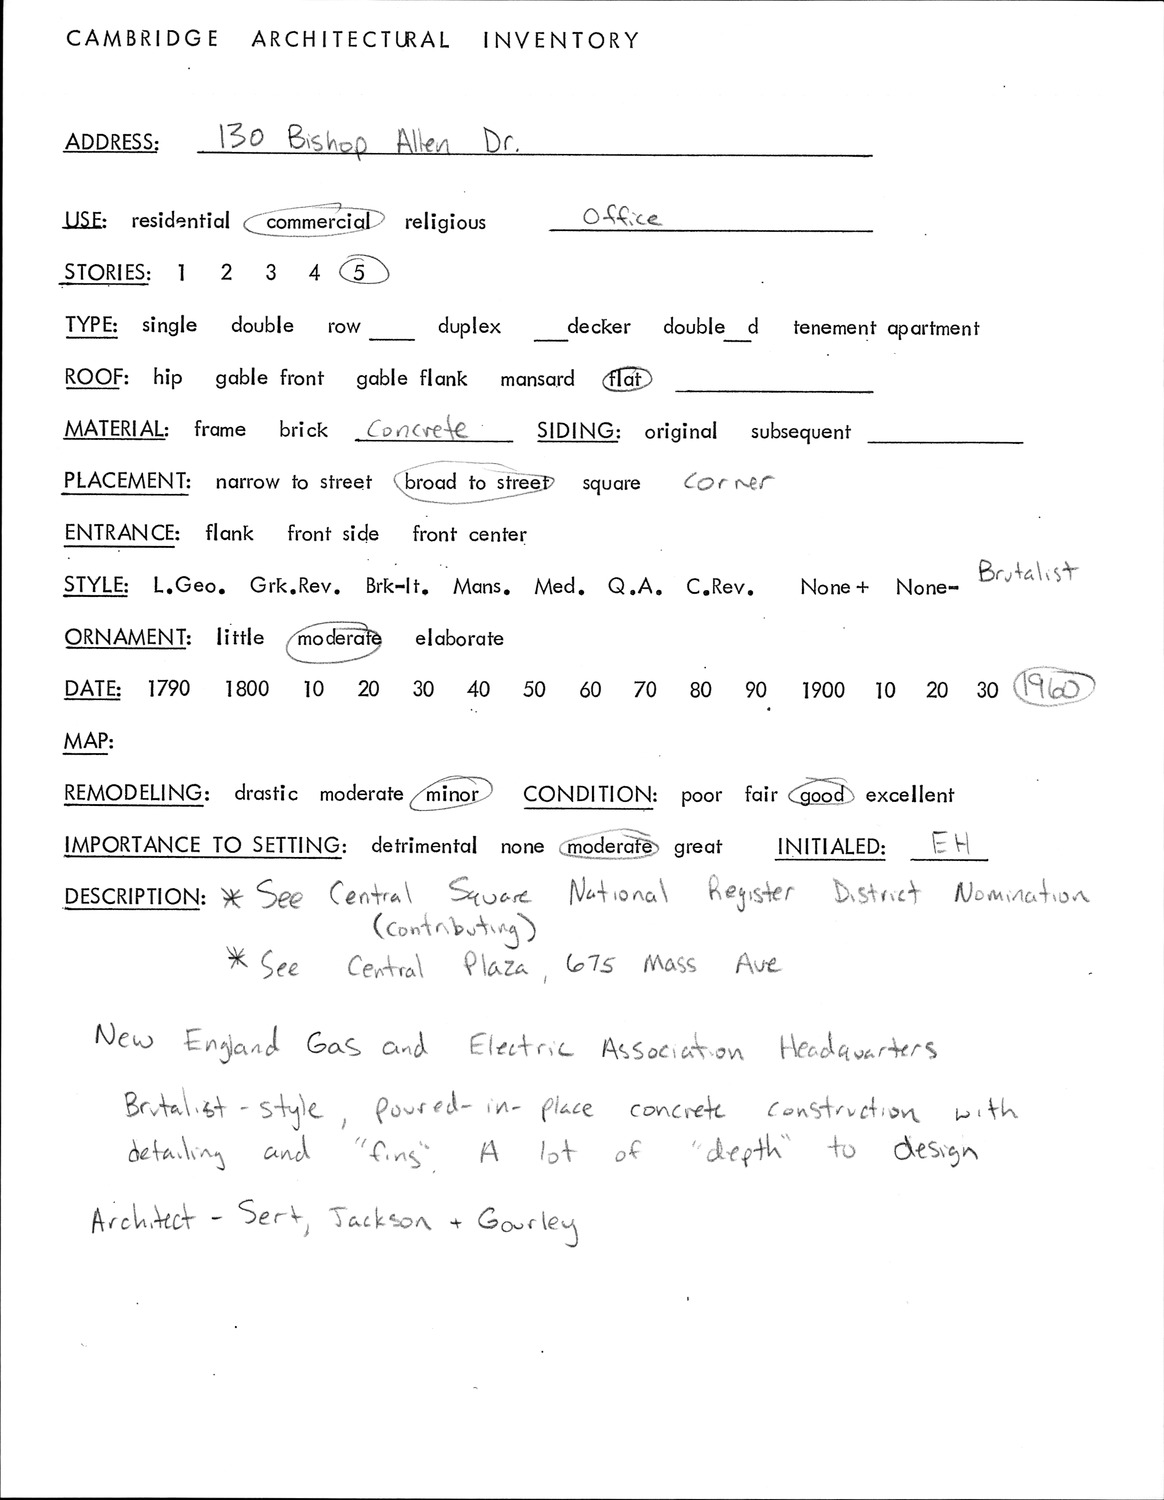 CAMBRIDGE ARCHITECTURAL INVENTORY
ADDRESS: 130 Bishop Allen Dr.
USE: residential commercial religious Office
STORIES: 1 2 3 4 5
TYPE: single double row ___ duplex ___decker double__d tenement apartment
ROOF: hip gable front gable flank mansard flat
MATERIAL: frame brick Concrete SIDING: original subsequent
PLACEMENT: narrow to street broad to street square corner
ENTRANCE: flank front side front center
STYLE: L.Geo. Grk.Rev. Brk-It. Mans. Med. Q.A. C.Rev. None+ None- Brutalist
ORNAMENT: little moderate elaborate
DATE: 1790 1800 10 20 30 40 50 60 70 80 90 1900 10 20 30 1960
MAP:
REMODELING: drastic moderate minor CONDITION: poor fair good excellent
IMPORTANCE TO SETTING: detrimental none moderate great INITIALED: EH
DESCRIPTION: * See Central Square National Register District Nomination
(contributing)
* See Central Plaza, 675 Mass Ave
New England Gas and Electric Association Headquarters
Brutalist-style, poured-in-place concrete construction with
detailing and "fins". A lot of "depth" to design
Architect - Sert, Jackson + Gourley